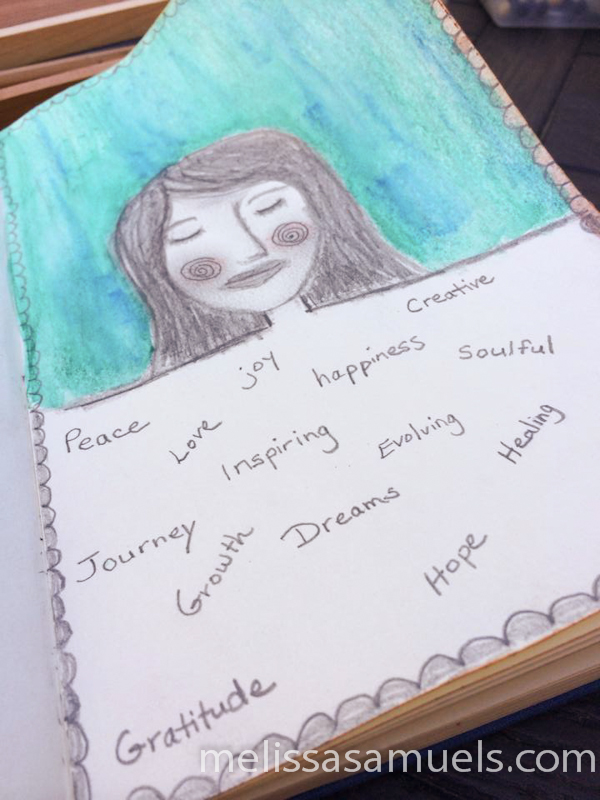 Creative
joy
happiness
Soulful
Peace
Love
Inspiring
Evolving
Healing
Journey
Growth
Dreams
Hope
Gratitude
melissasamuels.com